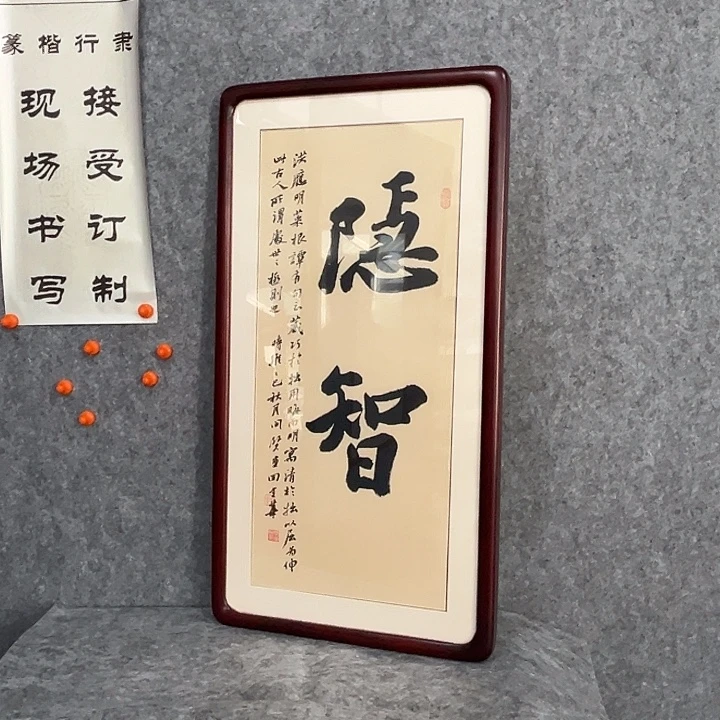 篆楷行隶
接受订制
现场书写
隐智
洪應明菜根譚有句云藏巧於拙用晦而明寓清於濁以屈为伸
此古人所謂處世之極則也 時維乙巳秋月